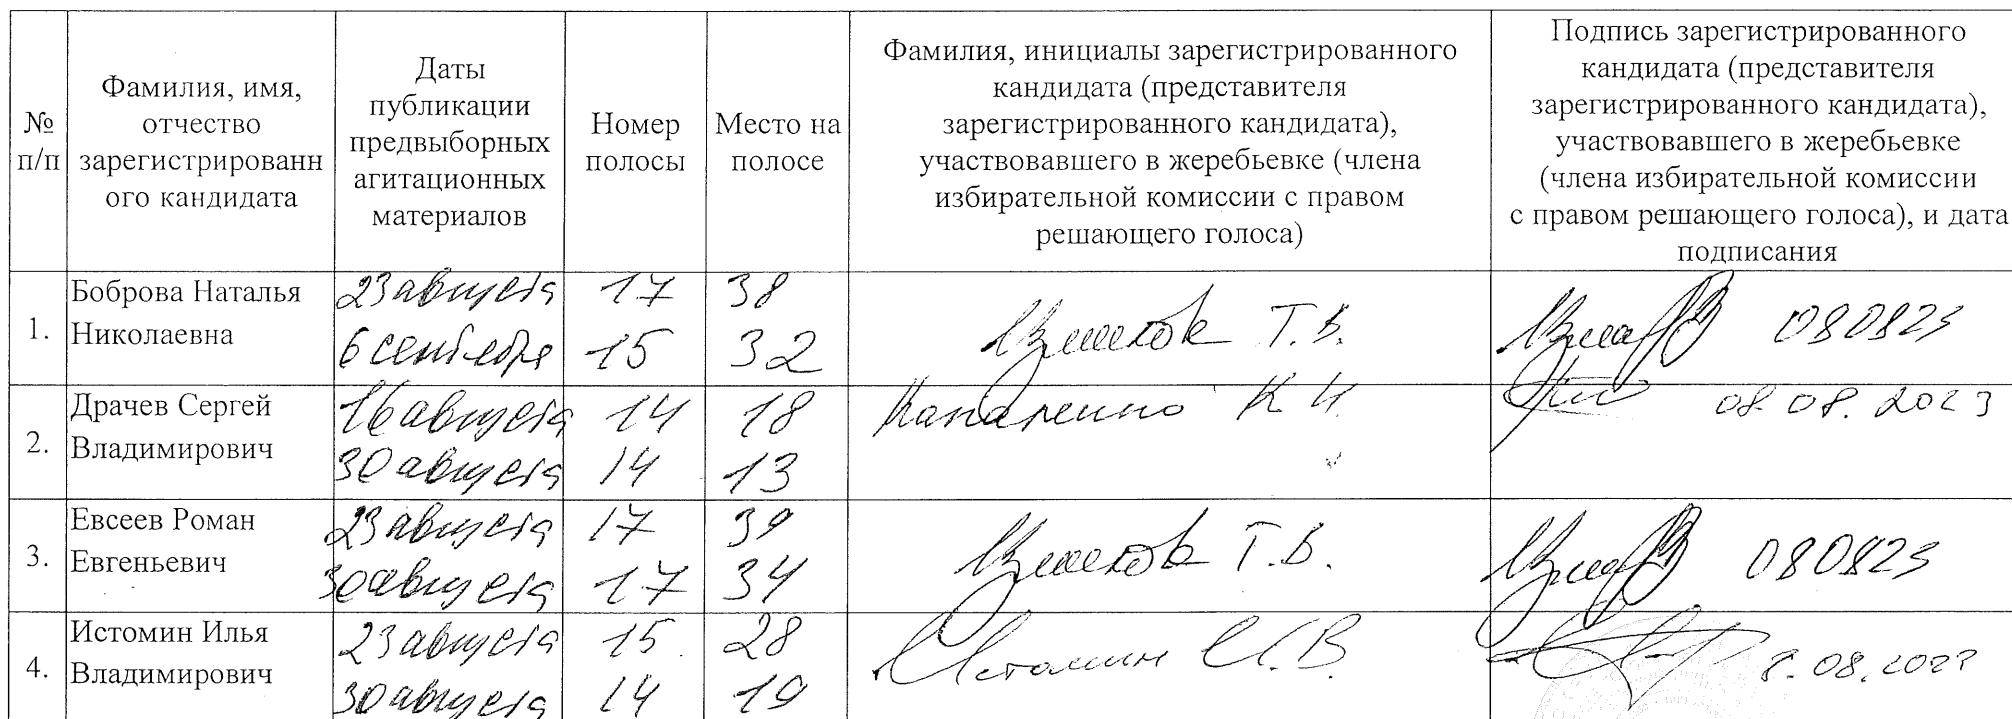 №
п/п
Фамилия, имя,
отчество
зарегистрированн
ого кандидата
Даты
публикации
предвыборных
агитационных
материалов
Номер
полосы
Место на
полосе
Фамилия, инициалы зарегистрированного
кандидата (представителя
зарегистрированного кандидата),
участвовавшего в жеребьевке (члена
избирательной комиссии с правом
решающего голоса)
Подпись зарегистрированного
кандидата (представителя
зарегистрированного кандидата),
участвовавшего в жеребьевке
(члена избирательной комиссии
с правом решающего голоса), и дата
подписания
1.
Боброва Наталья
Николаевна
23 августа 17 38
6 сентября 15 32
Т.В.
080823
2.
Драчев Сергей
Владимирович
16 августа 14 18
30 августа 14 13
К И.
08.08.2023
3.
Евсеев Роман
Евгеньевич
23 августа 17 39
30 августа 17 34
Т.В.
080823
4.
Истомин Илья
Владимирович
23 августа 15 28
30 августа 14 19
Истомин И.В.
8.08.2023